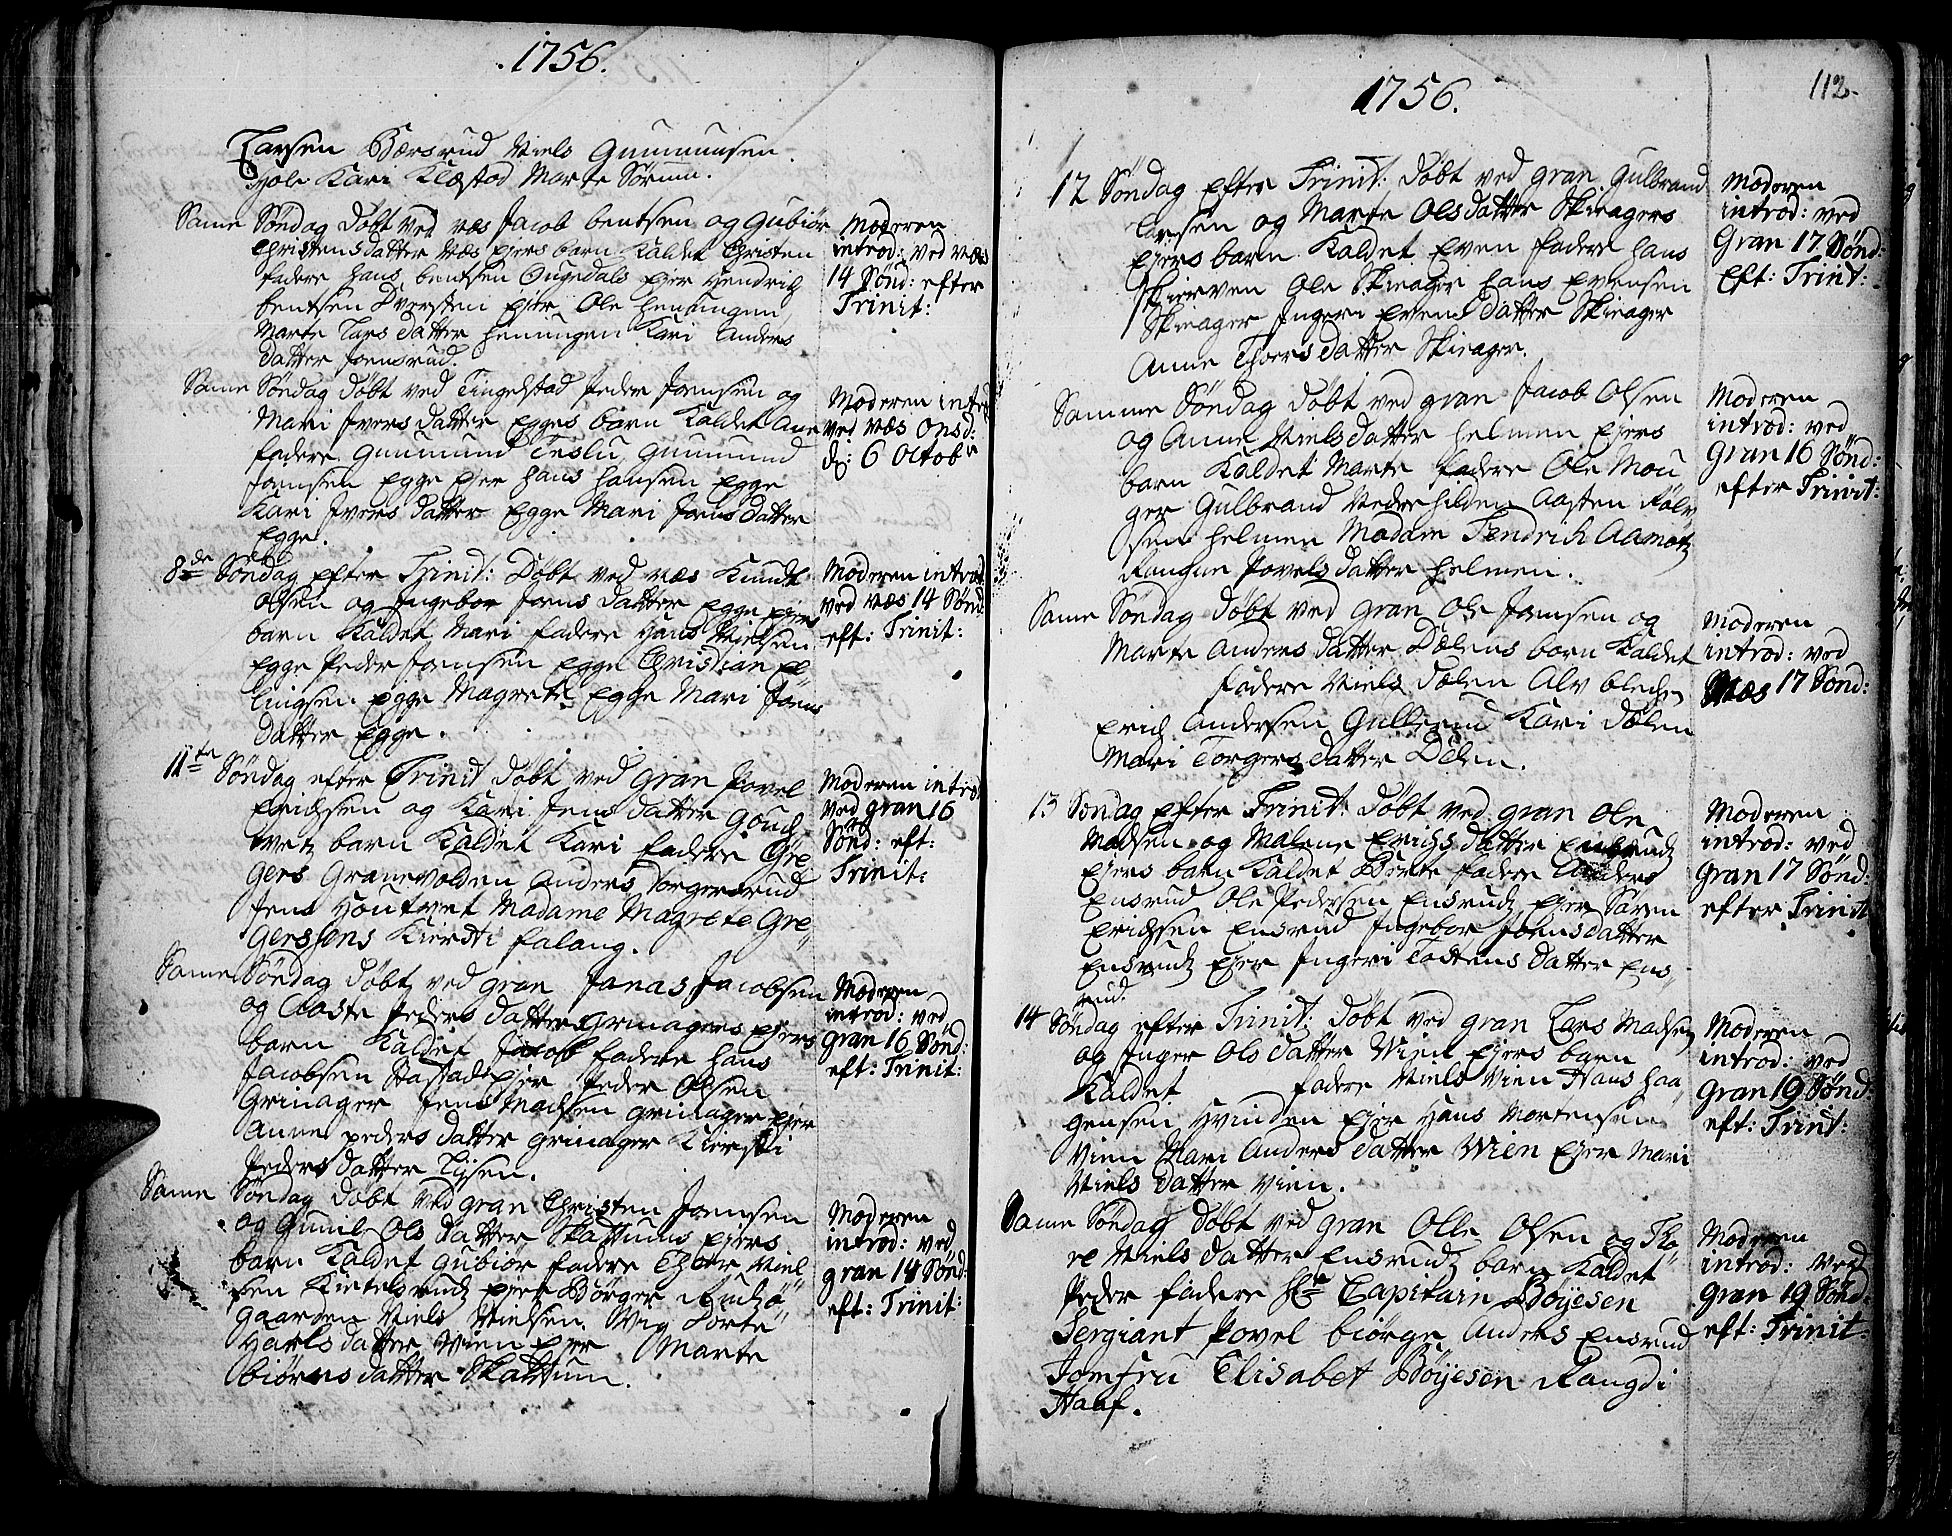 1756.
Larsen Børsrud Niels Gummunsen
Hole Kari Klæstad Marte Sørum.
Same Søndag døbt ved Næs Jacob bentsen og Gubiør
Christensdatter Næs ejers barn kaldet Christen
faddere hans bentsen Ougedals ejer Hendrich
bentsen Dvergsten ejer Ole henningen
Marte Lars datter henningen Kari Anders
datter Joensrud.
Moderen
introd: ved Næs
14 Sønd: efter
Trinit:
Same Søndag døbt ved Tingelstad Peder Joensen og
Mari Ivers datter Egges barn kaldet Ane
faddere Gummund Teslu, Gummund
Joensen Egge ejer hans hansen Egge
Kari Ivers datter Egge Mari Joens datter
Egge.
Moderen introd
ved Næs Onsd:
d: 6 Octobr
8de Søndag efter Trinit: Døbt ved Næs Knud
Olsen og Ingebor Joens datter Egge ejers
barn kaldet Mari faddere Hans Nielsen
Egge Peder Joensen Egge Christian El
lingsen Egge Magrete Egge Mari Joens
datter Egge.
Moderen introd
ved Næs 14 Sønd
eft: Trinit:
11te Søndag efter Trinit døbt ved gran Povel
Erichsen og Kari Jens datter
barn kaldet Kari faddere Gre
gers Granevolden Anders Torgersrud
Jens Hontvet Madame Magrete Gre„
gersens Kiersti falang.
Moderen introd
ved gran 16
Sønd: eft:
Trinit:
Same Søndag døbt ved gran Jonas Jacobsen
og Aaste Peders datter Grinagers ejers
barn kaldet Jacob faddere hans
Jacobsen Stastads ejer Peder Olsen
Grinager Jens Madsen grinager ejer
Anne peders datter grinager Kiersti
Peders datter Lysen.
Moderen
introd: ved
gran 16 Sønd:
eft: Trinit:
Same Søndag døbt ved gran Christen Joensen
og Gunil Ols datter Skattums ejers
barn kaldet Gubiør faddere Thor Niel
sen Kietelsrud ejer Børger
gaarden Niels Nielsen Wig Dorte
Harls datter Wien ejer Marte
biørns datter Skattum.
Moderen
introd: ved
gran 14 Sønd:
eft: Trinit:
1756.
112.
12 Søndag efter Trinit: døbt ved gran Gulbrand
Larsen og Marte Olsdatter Skieagers
ejers barn kaldet Even faddere hans
Skierven Ole Skieager hans Evensen
Skieager Ingeri Evens datter Skieager
Anne Thorsdatter Skieager.
Moderen
introd: ved
Gran 17 Sønd:
Eft: Trint:
Samme Søndag døbt ved gran Jacob Olsen
og Anne Nielsdatter helmen ejers
barn kaldet Marte faddere Ole Mou
ger Gulbrand Nedrehilden Aasten Rølv
sen helmen Madam Fendrich Aamotz
Rangne Povelsdatter helmen.
Moderen
introd: ved
Gran 16 Sønd:
efter Trinit:
Same Søndag døbt ved gran Ole Joensen og
Marte Anders datter Dælens barn kaldet
faddere Niels Dælen Alv
Erich Andersen Gullerud Kari Dælen
Mari Torgersdatter Dælen.
Moderen
introd: ved
Næs 17 Sønd:
13 Søndag efter Trinit: døbt ved gran Ole
Madsen og Malene Erichs datter Ensrudz
ejers barn kaldet Børte faddere Anders
Ensrud Ole Pedersen Ensrudz ejer Søren
Erichsen Ensrud Ingebor Joensdatter
Ensrudz ejer Ingeri Tostens datter Ens„
rud.
Moderen
introd: ved
Gran 17 Sønd:
efter Trinit
14 Søndag efter Trinit: døbt ved gran Lars Madsen
og Inger Ols datter Wien ejers barn
kaldet faddere Niels Vien Hans haa„
gensen Hvinden ejer Hans Mortensen
Vien Mari Anders datter Wien ejer Mari
Niels datter Vien.
Moderen
introd: ved
Gran 19 Sønd:
eft: Trint:
Same Søndag døbt ved gran Olle Olsen og Tho„
re Niels datter Ensrudz barn kaldet
Peder faddere Hr Capitain Bøyesen
Sergiant Povel biørge Anders Ensrud
Jomfru Elisabet Bøyesen Rangdi
Haaf.
Moderen
introd: ved
Gran 19 Sønd:
eft: Trinit: